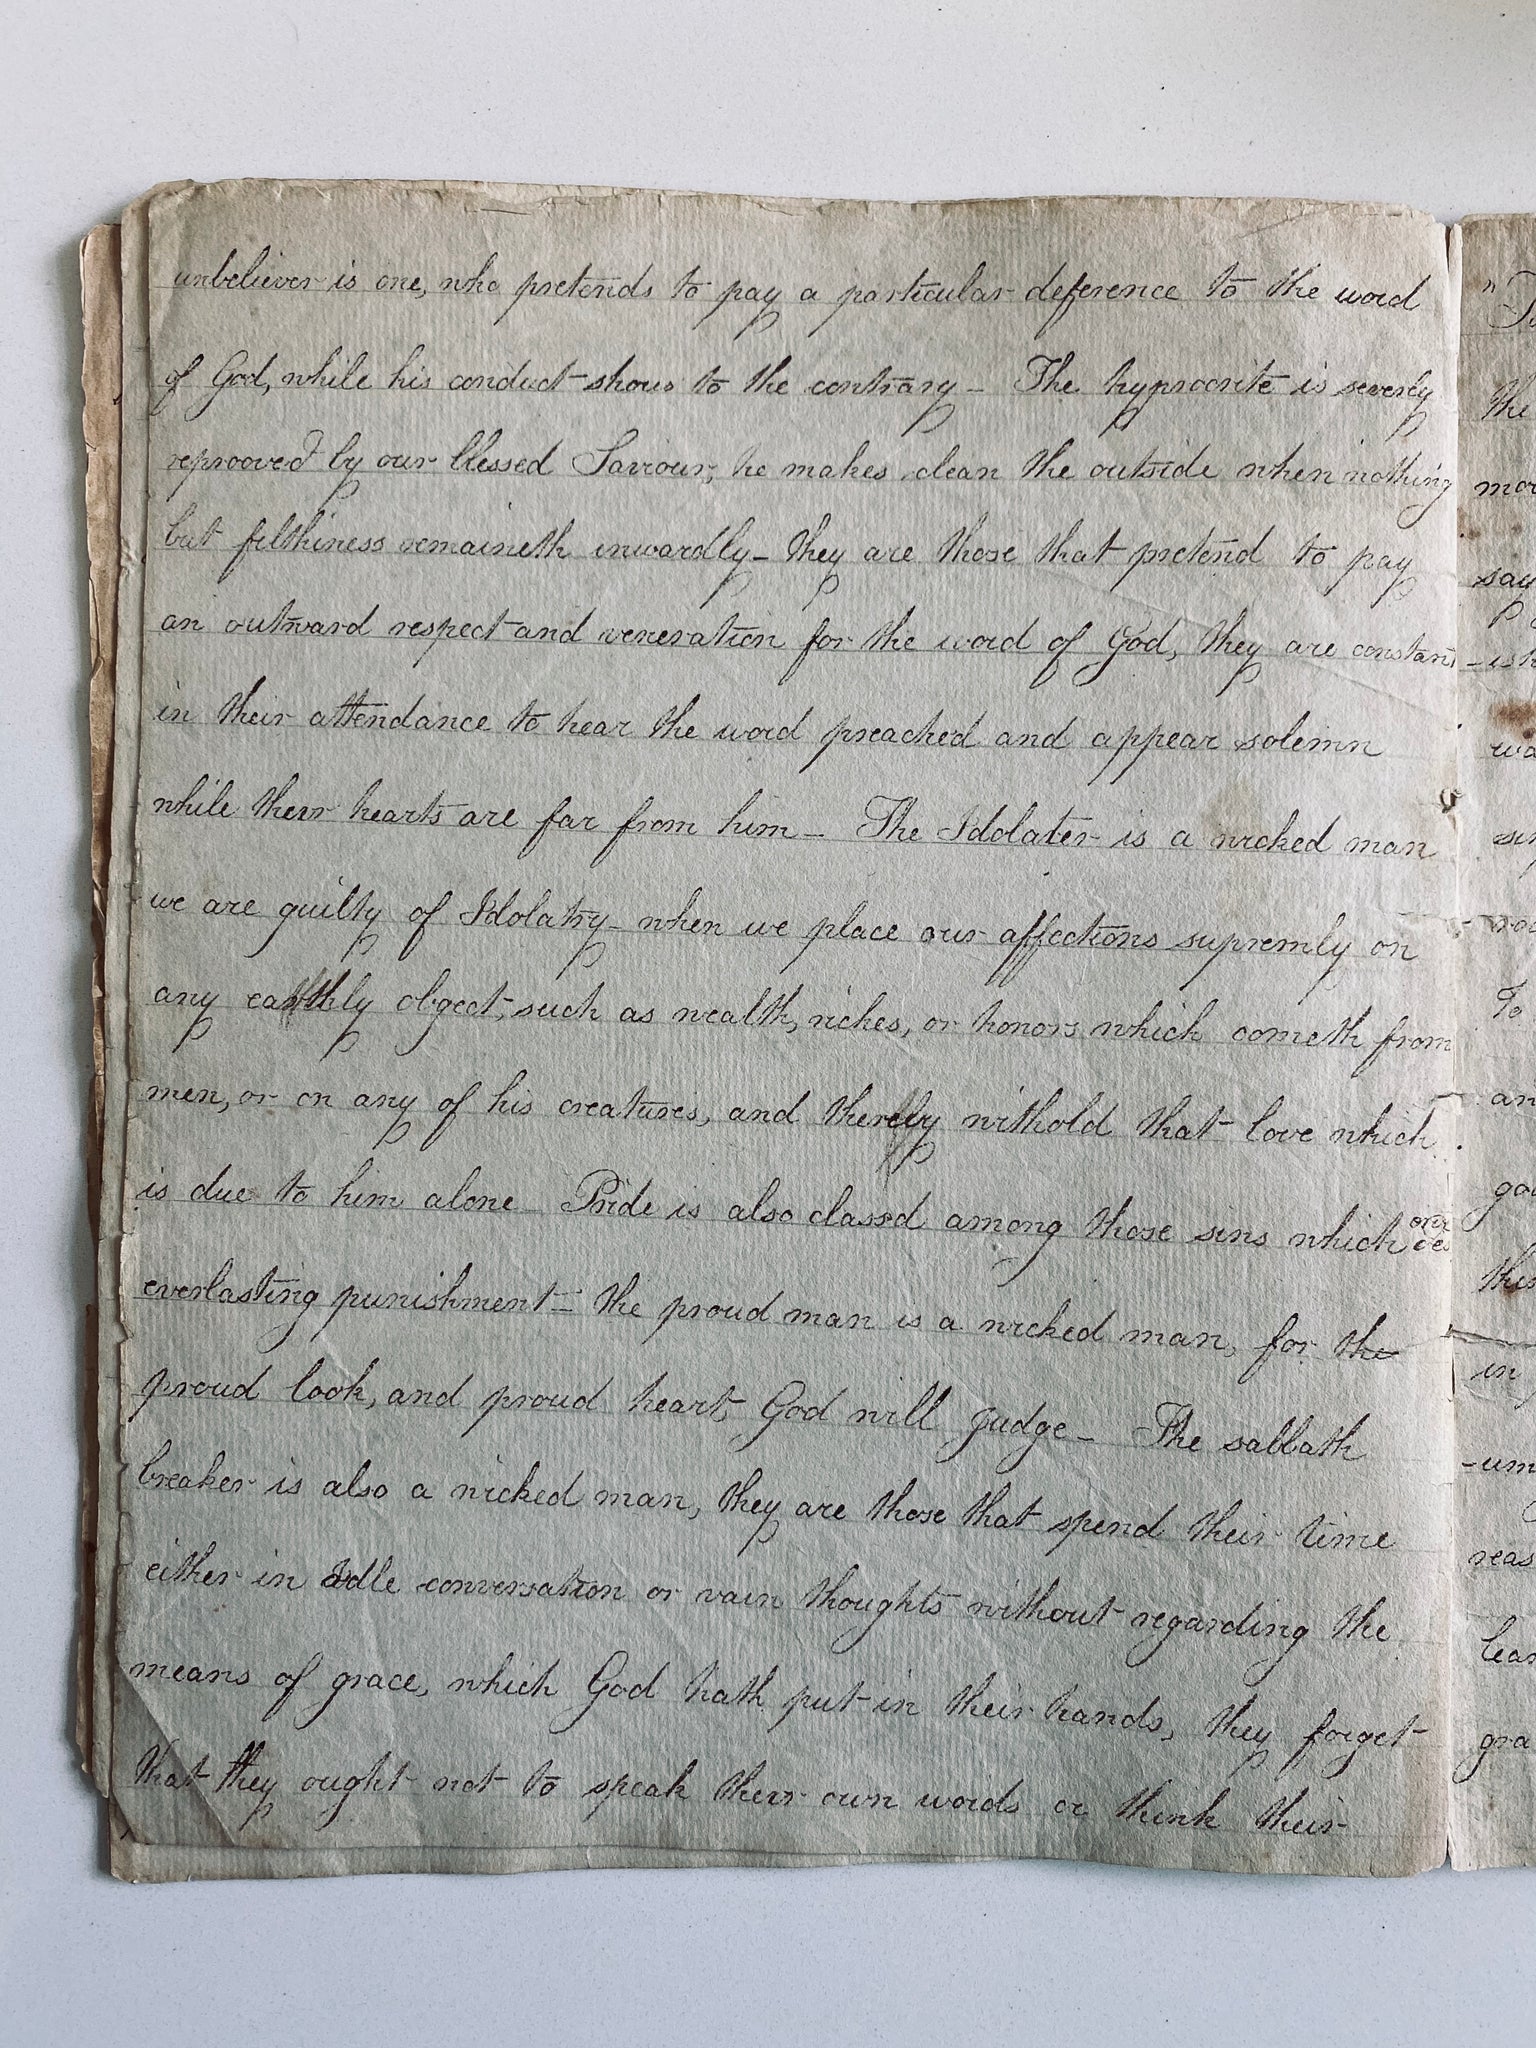 unbeliever is one, who pretends to pay a particular deference to the word
of God, while his conduct shows to the contrary – The hyprocrite is severly
reprooved by our blessed Saviour, he makes clean the outside when nothing
but filthiness remaineth inwardly – they are those that pretend to pay
an outward respect and veneration for the word of God, they are constant
in their attendance to hear the word preached and appear solemn
while their hearts are far from him – The Idolater is a wicked man
we are guilty of Idolatry – when we place our affections supremly on
any earthly object, such as wealth, riches, or honors which cometh from
men, or on any of his creatures, and thereby withold that love which
is due to him alone – Pride is also classed among those sins which
everlasting punishment – the proud man is a wicked man, for the
proud look, and proud heart, God will judge – The sabbath
breaker is also a wicked man, they are those that spend their time
either in Idle conversation or vain thoughts without regarding the
means of grace, which God hath put in their hands, they forget
that they ought not to speak their own words or think their
"
the
mor
say
-ish
wa
sin
To
an
in
-um
reas
lear
gra